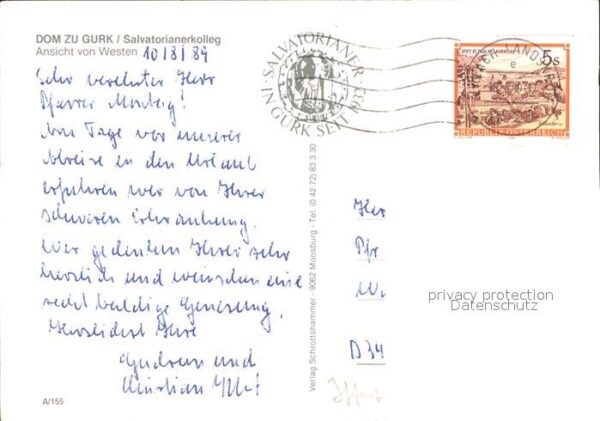 DOM ZU GURK / Salvatorianerkolleg
Ansicht von Westen 10/8/89
Sehr verehrter Herr
Pfarrer
Am Tage vor unserer
Abreise in den Urlaub
erfuhren wir von Ihrer
schweren Erkrankung.
Wir gedenken Ihrer sehr
herzlich und wünschen eine
recht baldige Genesung.
Herzlichst Ihre
Gudrun und
Christian
A/155
SALVATORIANER
IN GURK SEIT 1932
Verlag Schrottshammer - 9062 Moosburg - Tel. (0 42 72) 83 3 30
5s
REPUBLIK ÖSTERREICH
Herr
Pfr
D 34
privacy protection
Datenschutz